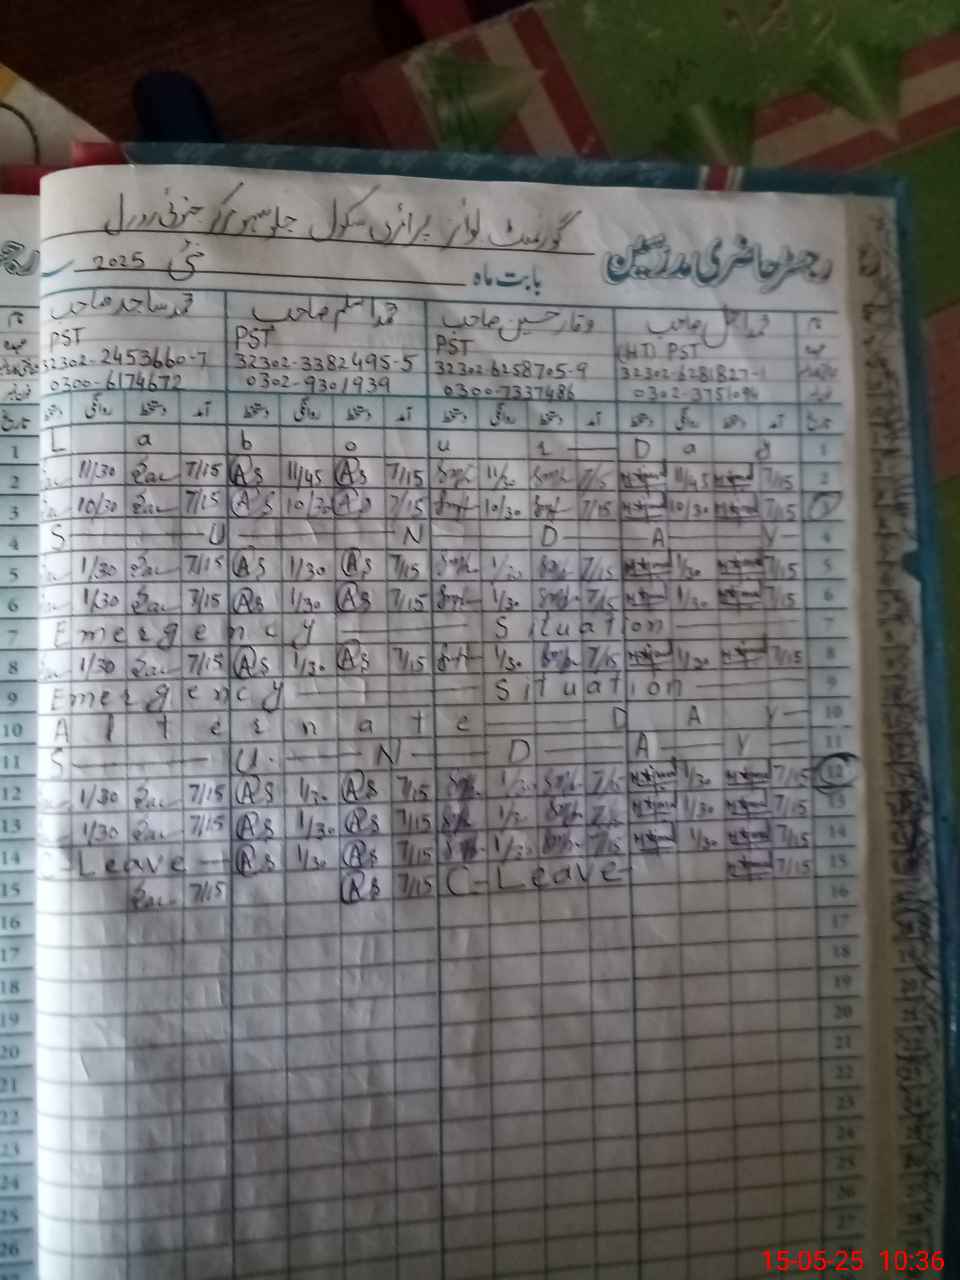 گورنمنٹ لوئر پرائمری سکول جلو سہو مرکز جنوبی رورل
رجسٹر حاضری مدرسین بابت ماہ مئی 2025
محمد اجمل صاحب وقار حسین صاحب محمد اسلم صاحب محمد ساجد صاحب
PST PST PST (HT) PST
32302-2453660-7 32302-3382495-5 32302-6258705-9 32302-6281827-1
0300-6174672 0302-9301939 0300-7337486 0302-3751094
تاریخ آمد دستخط روانگی دستخط آمد دستخط روانگی دستخط آمد دستخط روانگی دستخط آمد دستخط روانگی دستخط تاریخ
1 L a b o u r D a y 1
2 11/30 7/15 AS 11/45 AS 7/15 11/30 7/15 11/45 7/15 2
3 10/30 7/15 AS 10/30 AS 7/15 10/30 7/15 10/30 7/15 3
4 S U N D A Y 4
5 1/30 7/15 AS 1/30 AS 7/15 1/30 7/15 1/30 7/15 5
6 1/30 7/15 AS 1/30 AS 7/15 1/30 7/15 1/30 7/15 6
7 Emergency Situation 7
8 1/30 7/15 AS 1/30 AS 7/15 1/30 7/15 1/30 7/15 8
9 Emergency Situation 9
10 A l t e r n a t e D A Y 10
11 S U N D A Y 11
12 1/30 7/15 AS 1/30 AS 7/15 1/30 7/15 1/30 7/15 12
13 1/30 7/15 AS 1/30 AS 7/15 1/30 7/15 1/30 7/15 13
14 C-Leave AS 1/30 AS 7/15 1/30 7/15 1/30 7/15 14
15 7/15 AS 7/15 C-Leave 7/15 15
16 16
17 17
18 18
19 19
20 20
21 21
22 22
23 23
24 24
25 25
26 26
27
28
15-05-25 10:36